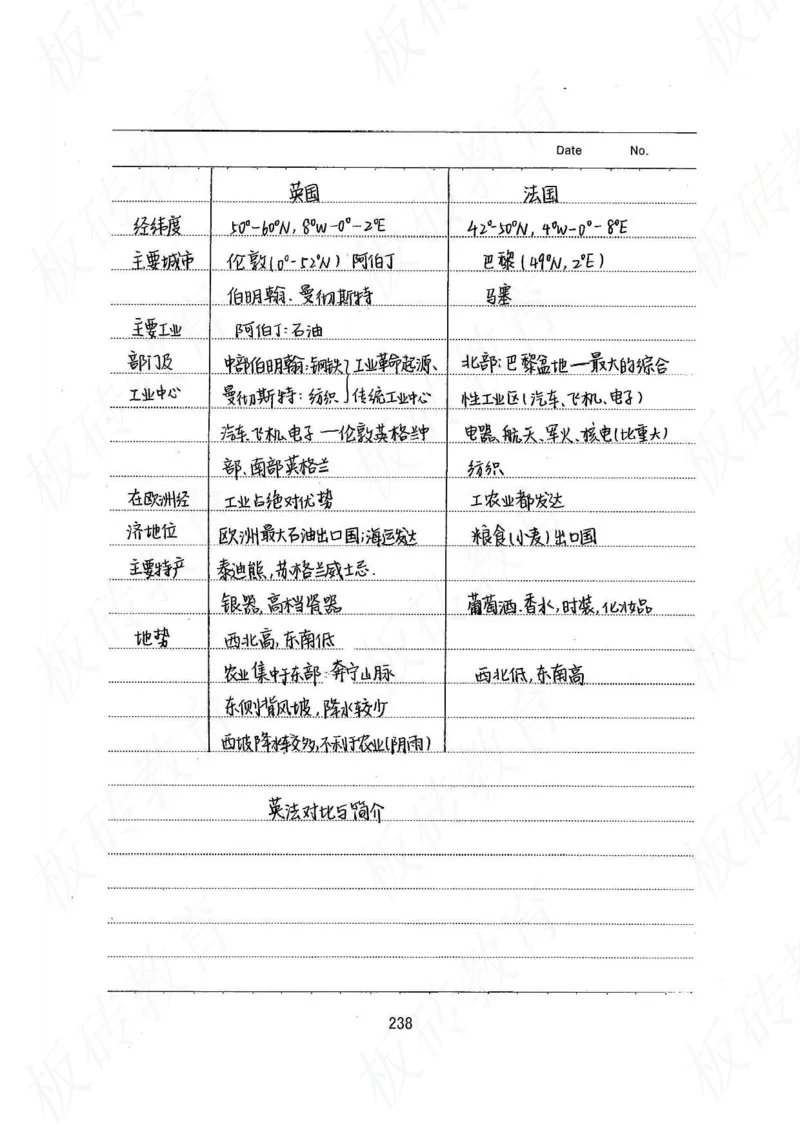 Date No.
英国 法国
经纬度 50°-60°N, 8°W-0°-2°E 42°-50°N, 4°W-0°-8°E
主要城市 伦敦(0°-52°N) 阿伯丁 巴黎(49°N, 2°E)
伯明翰、曼彻斯特 马塞
主要工业 阿伯丁:石油
部门及 中部伯明翰:钢铁}工业革命起源、 北部:巴黎盆地—最大的综合
工业中心 曼彻斯特:纺织 传统工业中心 性工业区(汽车、飞机、电子)
汽车、飞机、电子—伦敦英格兰中 电器、航天、军火、核电(比重大)
部、南部英格兰 纺织
在欧洲经 工业占绝对优势 工农业都发达
济地位 欧洲最大石油出口国;海运发达 粮食(小麦)出口国
主要特产 泰迪熊,苏格兰威士忌.
银器、高档瓷器 葡萄酒.香水,时装,化妆品
地势 西北高,东南低
农业集中于东部:奔宁山脉 西北低,东南高
东侧背风坡,降水较少
西坡降水较多,不利于农业(阴雨)
英法对比与简介
238
板砖教育